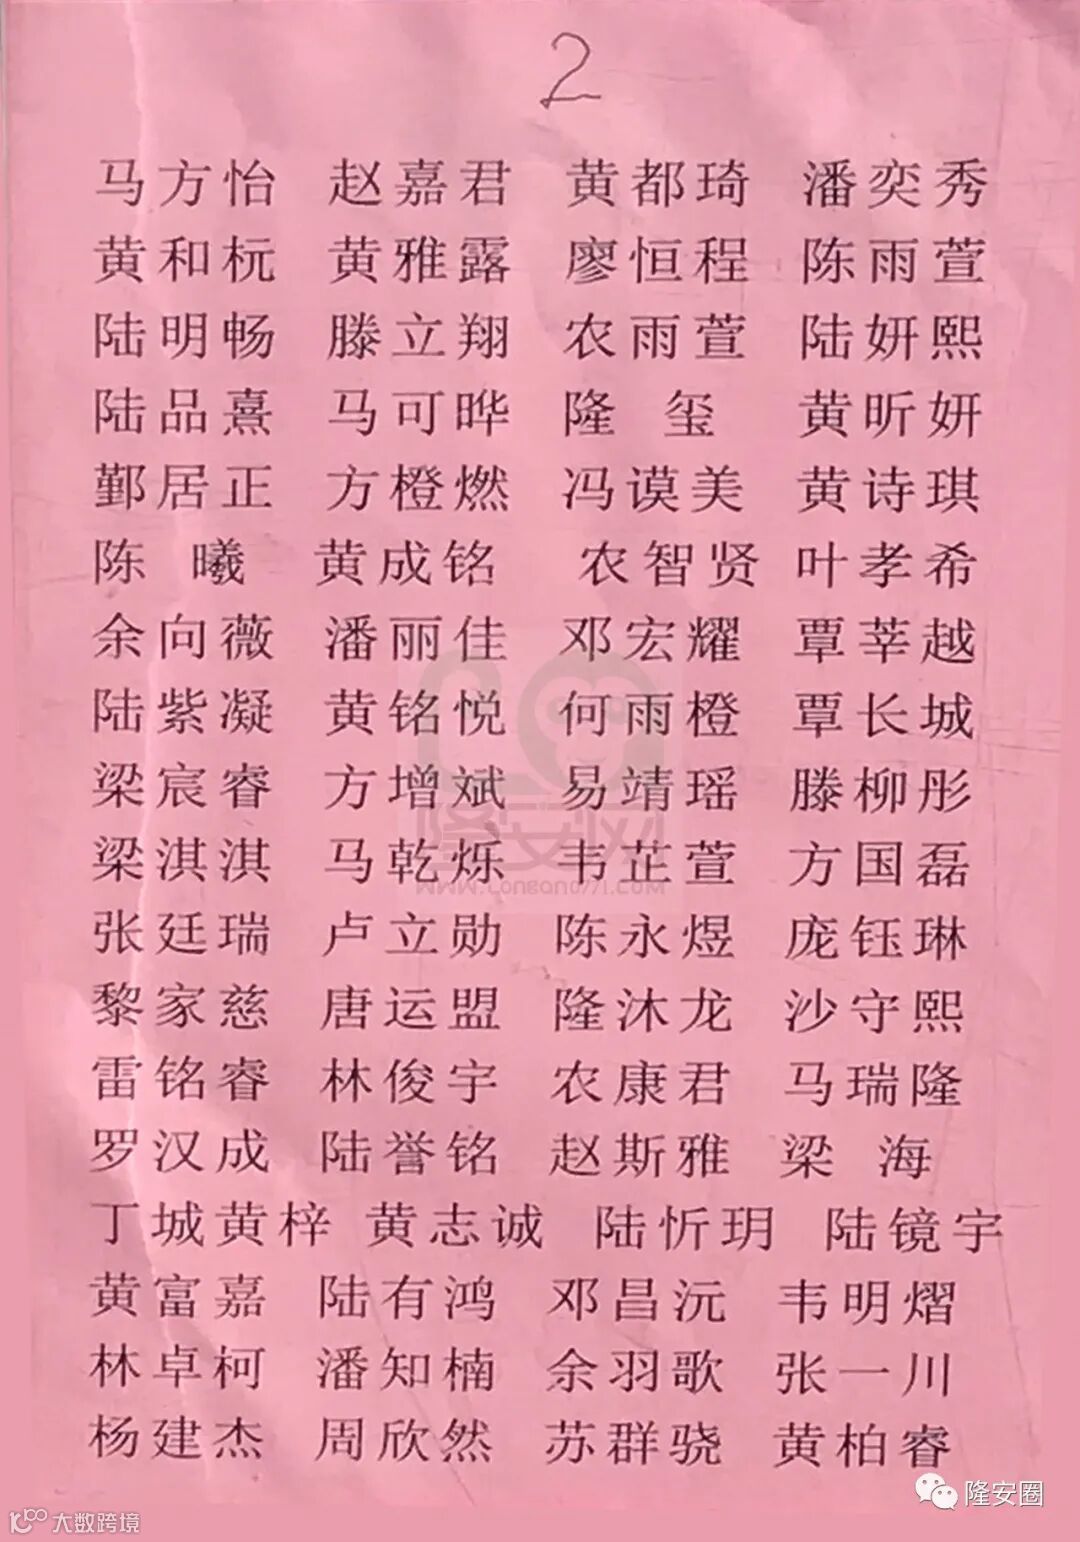 2
马方怡 赵嘉君 黄都琦 潘奕秀
黄和杬 黄雅露 廖恒程 陈雨萱
陆明畅 滕立翔 农雨萱 陆妍熙
陆品熹 马可晔 隆玺 黄昕妍
鄞居正 方橙燃 冯谟美 黄诗琪
陈曦 黄成铭 农智贤 叶孝希
余向薇 潘丽佳 邓宏耀 覃莘越
陆紫凝 黄铭悦 何雨橙 覃长城
梁宸睿 方增斌 易靖瑶 滕柳彤
梁淇淇 马乾烁 韦芷萱 方国磊
张廷瑞 卢立勋 陈永煜 庞钰琳
黎家慈 唐运盟 隆沐龙 沙守熙
雷铭睿 林俊宇 农康君 马瑞隆
罗汉成 陆誉铭 赵斯雅 梁海
丁城黄梓 黄志诚 陆忻玥 陆镜宇
黄富嘉 陆有鸿 邓昌沅 韦明熠
林卓柯 潘知楠 余羽歌 张一川
杨建杰 周欣然 苏群骁 黄柏睿
隆安网
WWW.LONGAN0771.COM
隆安圈
大数跨境